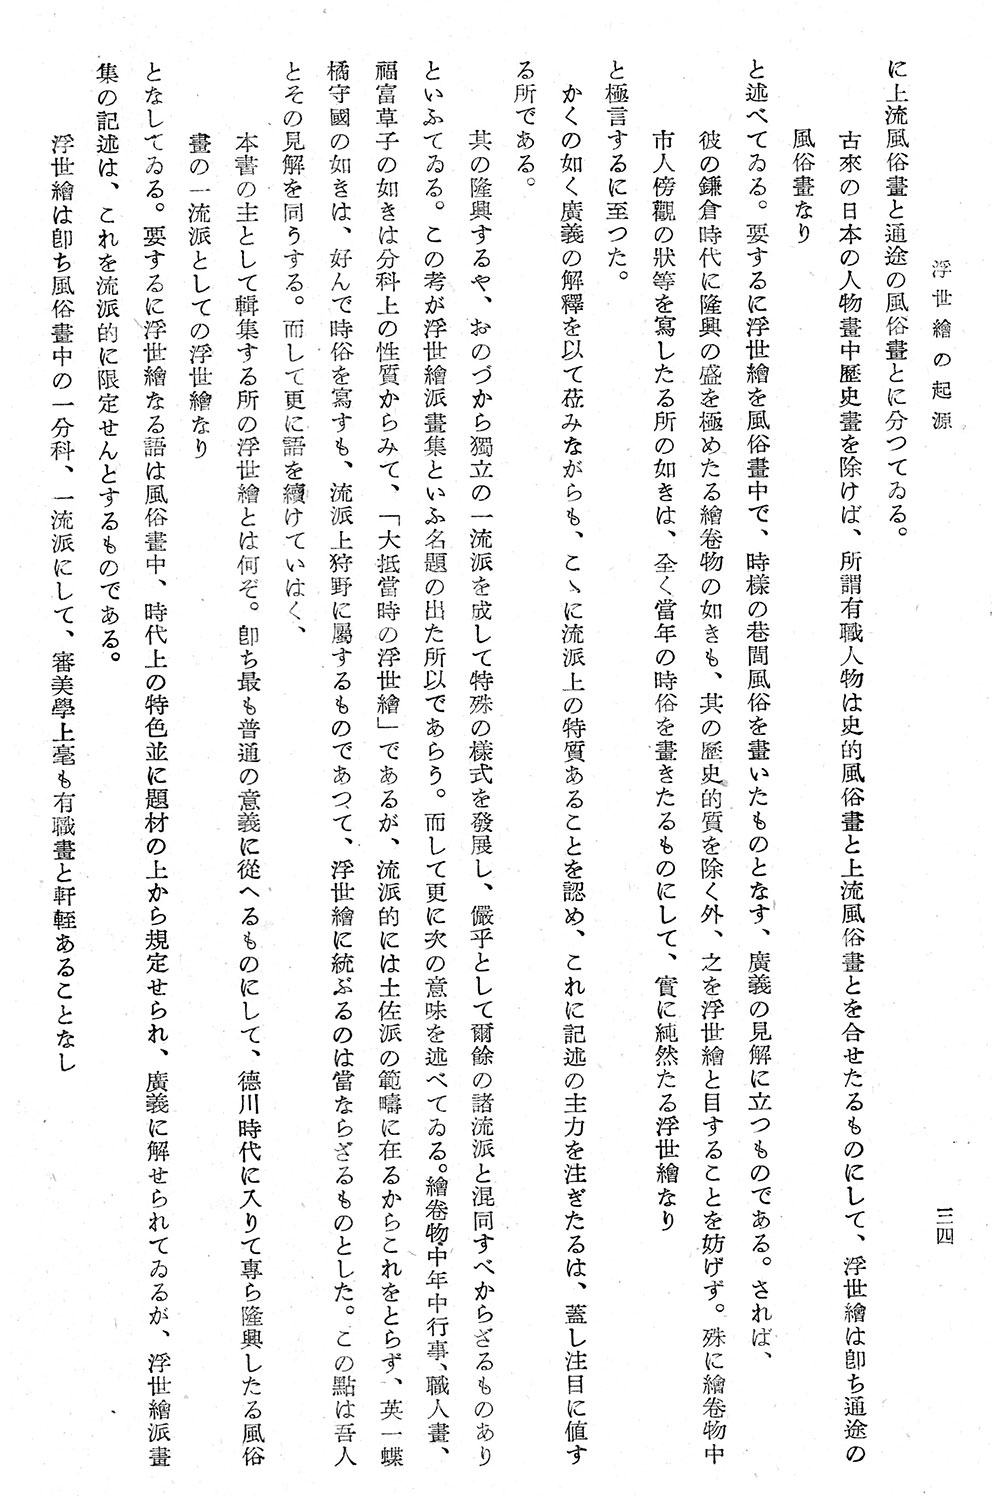 浮世繪の起源
三四
に上流風俗畫と通途の風俗畫とに分つてゐる。
古來の日本の人物畫中歷史畫を除けば、所謂有職人物は史的風俗畫と上流風俗畫とを合せたるものにして、浮世繪は卽ち通途の
風俗畫なり
と述べてゐる。要するに浮世繪を風俗畫中で、時樣の巷間風俗を畫いたものとなす、廣義の見解に立つものである。されば、
彼の鎌倉時代に隆興の盛を極めたる繪卷物の如きも、其の歷史的質を除く外、之を浮世繪と目することを妨げず。殊に繪卷物中
市人傍觀の狀等を寫したる所の如きは、全く當年の時俗を畫きたるものにして、實に純然たる浮世繪なり
と極言するに至つた。
かくの如く廣義の解釋を以て莅みながらも、こゝに流派上の特質あることを認め、これに記述の主力を注ぎたるは、蓋し注目に値す
る所である。
其の隆興するや、おのづから獨立の一流派を成して特殊の樣式を發展し、儼乎として爾餘の諸流派と混同すべからざるものあり
といふてゐる。この考が浮世繪派畫集といふ名題の出た所以であらう。而して更に次の意味を述べてゐる。繪卷物中年中行事、職人畫、
福富草子の如きは分科上の性質からみて、「大抵當時の浮世繪」であるが、流派的には土佐派の範疇に在るからこれをとらず、英一蝶
橘守國の如きは、好んで時俗を寫すも、流派上狩野に屬するものであつて、浮世繪に統ぶるのは當ならざるものとした。この點は吾人
とその見解を同うする。而して更に語を續けていはく、
本書の主として輯集する所の浮世繪とは何ぞ。卽ち最も普通の意義に從へるものにして、德川時代に入りて專ら隆興したる風俗
畫の一流派としての浮世繪なり
となしてゐる。要するに浮世繪なる語は風俗畫中、時代上の特色並に題材の上から規定せられ、廣義に解せられてゐるが、浮世繪派畫
集の記述は、これを流派的に限定せんとするものである。
浮世繪は卽ち風俗畫中の一分科、一流派にして、審美學上毫も有職畫と軒輊あることなし